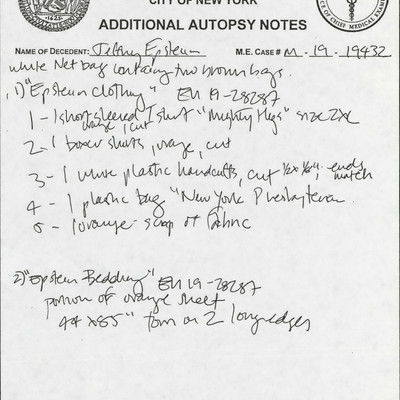 CITY OF NEW YORK
ADDITIONAL AUTOPSY NOTES
NAME OF DECEDENT: Jeffrey Epstein M.E. CASE # M-19-19432
white Net bag containing two brown bags.
1) "Epstein clothing" EU 19-28287
1 - 1 short sleeved T shirt "Mighty Hogs" size 2XL
orange, cut
2 - 1 boxer shorts, orange, cut
3 - 1 white plastic handcuffs, cut ends match
4 - 1 plastic bag "New York Presbyterian
5 - 1 orange scrap of fabric
2) "Epstein Bedding" EU 19-28287
portion of orange sheet
44 x 85" torn on 2 long edges